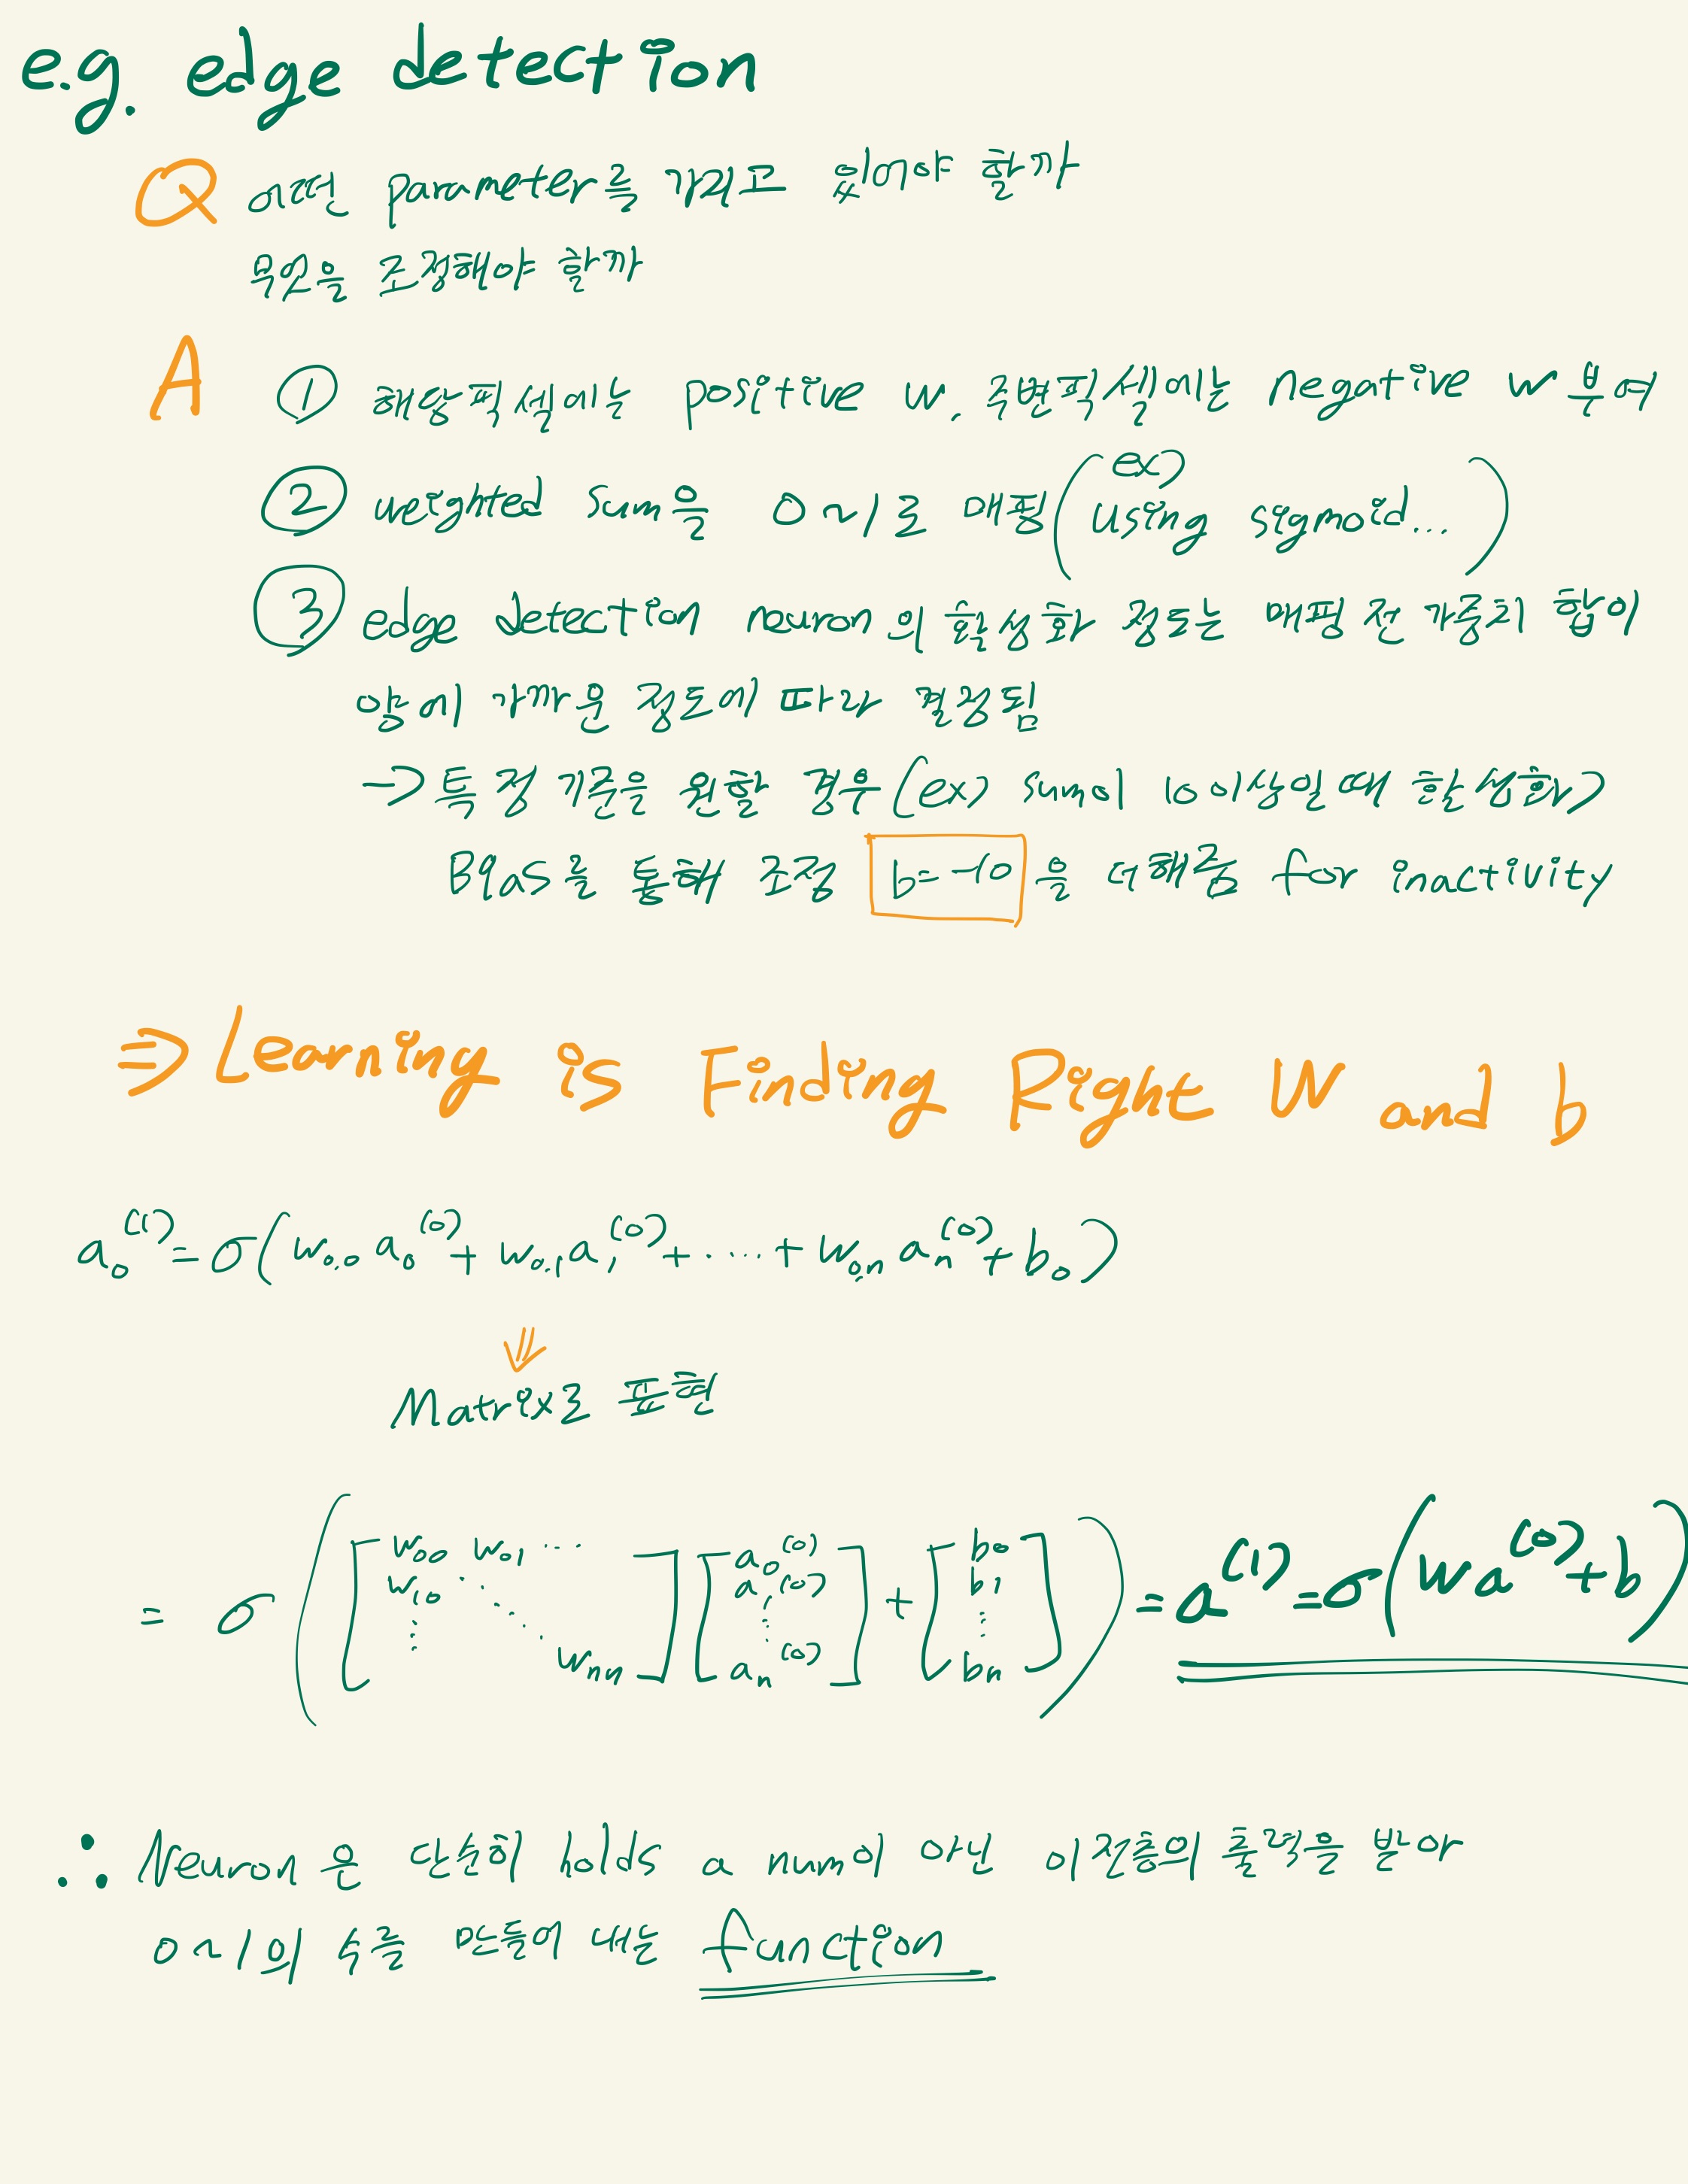 e.g. edge detection
Q 어떤 parameter를 가지고 있어야 할까
무엇을 조정해야 할까
A ① 해당픽셀에는 positive w, 주변픽셀에는 negative w 부여
② weighted sum을 0~1로 매핑 (ex) using sigmoid...)
③ edge detection neuron의 활성화 정도는 매핑 전 가중치 합이
양에 가까운 정도에 따라 결정됨
→ 특정 기준을 원할 경우 (ex) sum이 10 이상일 때 활성화)
Bias를 통해 조정 b=-10 을 더해줌 for inactivity
⇒ Learning is Finding Right W and b
a₀⁽¹⁾ = σ(w₀,₀ a₀⁽⁰⁾ + w₀,₁ a₁⁽⁰⁾ + ⋯ + w₀,ₙ aₙ⁽⁰⁾ + b₀)
⇓
Matrix로 표현
= σ([w₀₀ w₀₁ ⋯ w₁₀ ⋱ ⋮ wₙₙ][a₀⁽⁰⁾ a₁⁽⁰⁾ ⋮ aₙ⁽⁰⁾] + [b₀ b₁ ⋮ bₙ]) = a⁽¹⁾ = σ(wa⁽⁰⁾ + b)
∴ Neuron은 단순히 holds a num이 아닌 이전층의 출력을 받아
0~1의 수를 만들어 내는 function